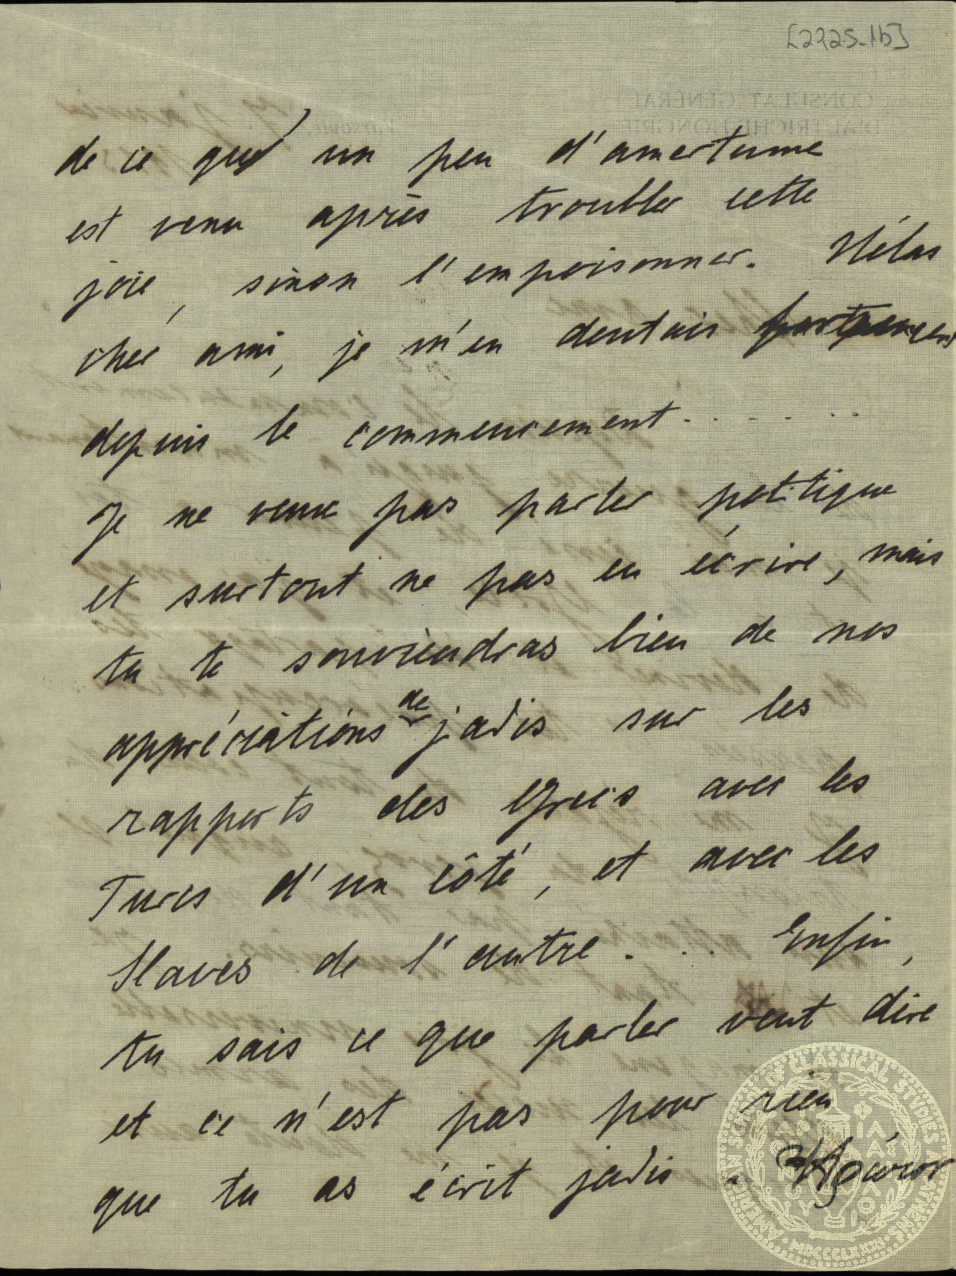 [2225.1b]
de ce que un peu d'amertume
est venu après troubler cette
joie, sinon l'empoisonner. Hélas
cher ami, je m'en doutais
depuis le commencement.......
Je ne veux pas parler politique
et surtout ne pas en écrire, mais
tu te souviendras bien de nos
appréciations de jadis sur les
rapports des Grecs avec les
Turcs d'un côté, et avec les
Slaves de l'autre... Enfin,
tu sais ce que parler veut dire
et ce n'est pas pour rien
que tu as écrit jadis.